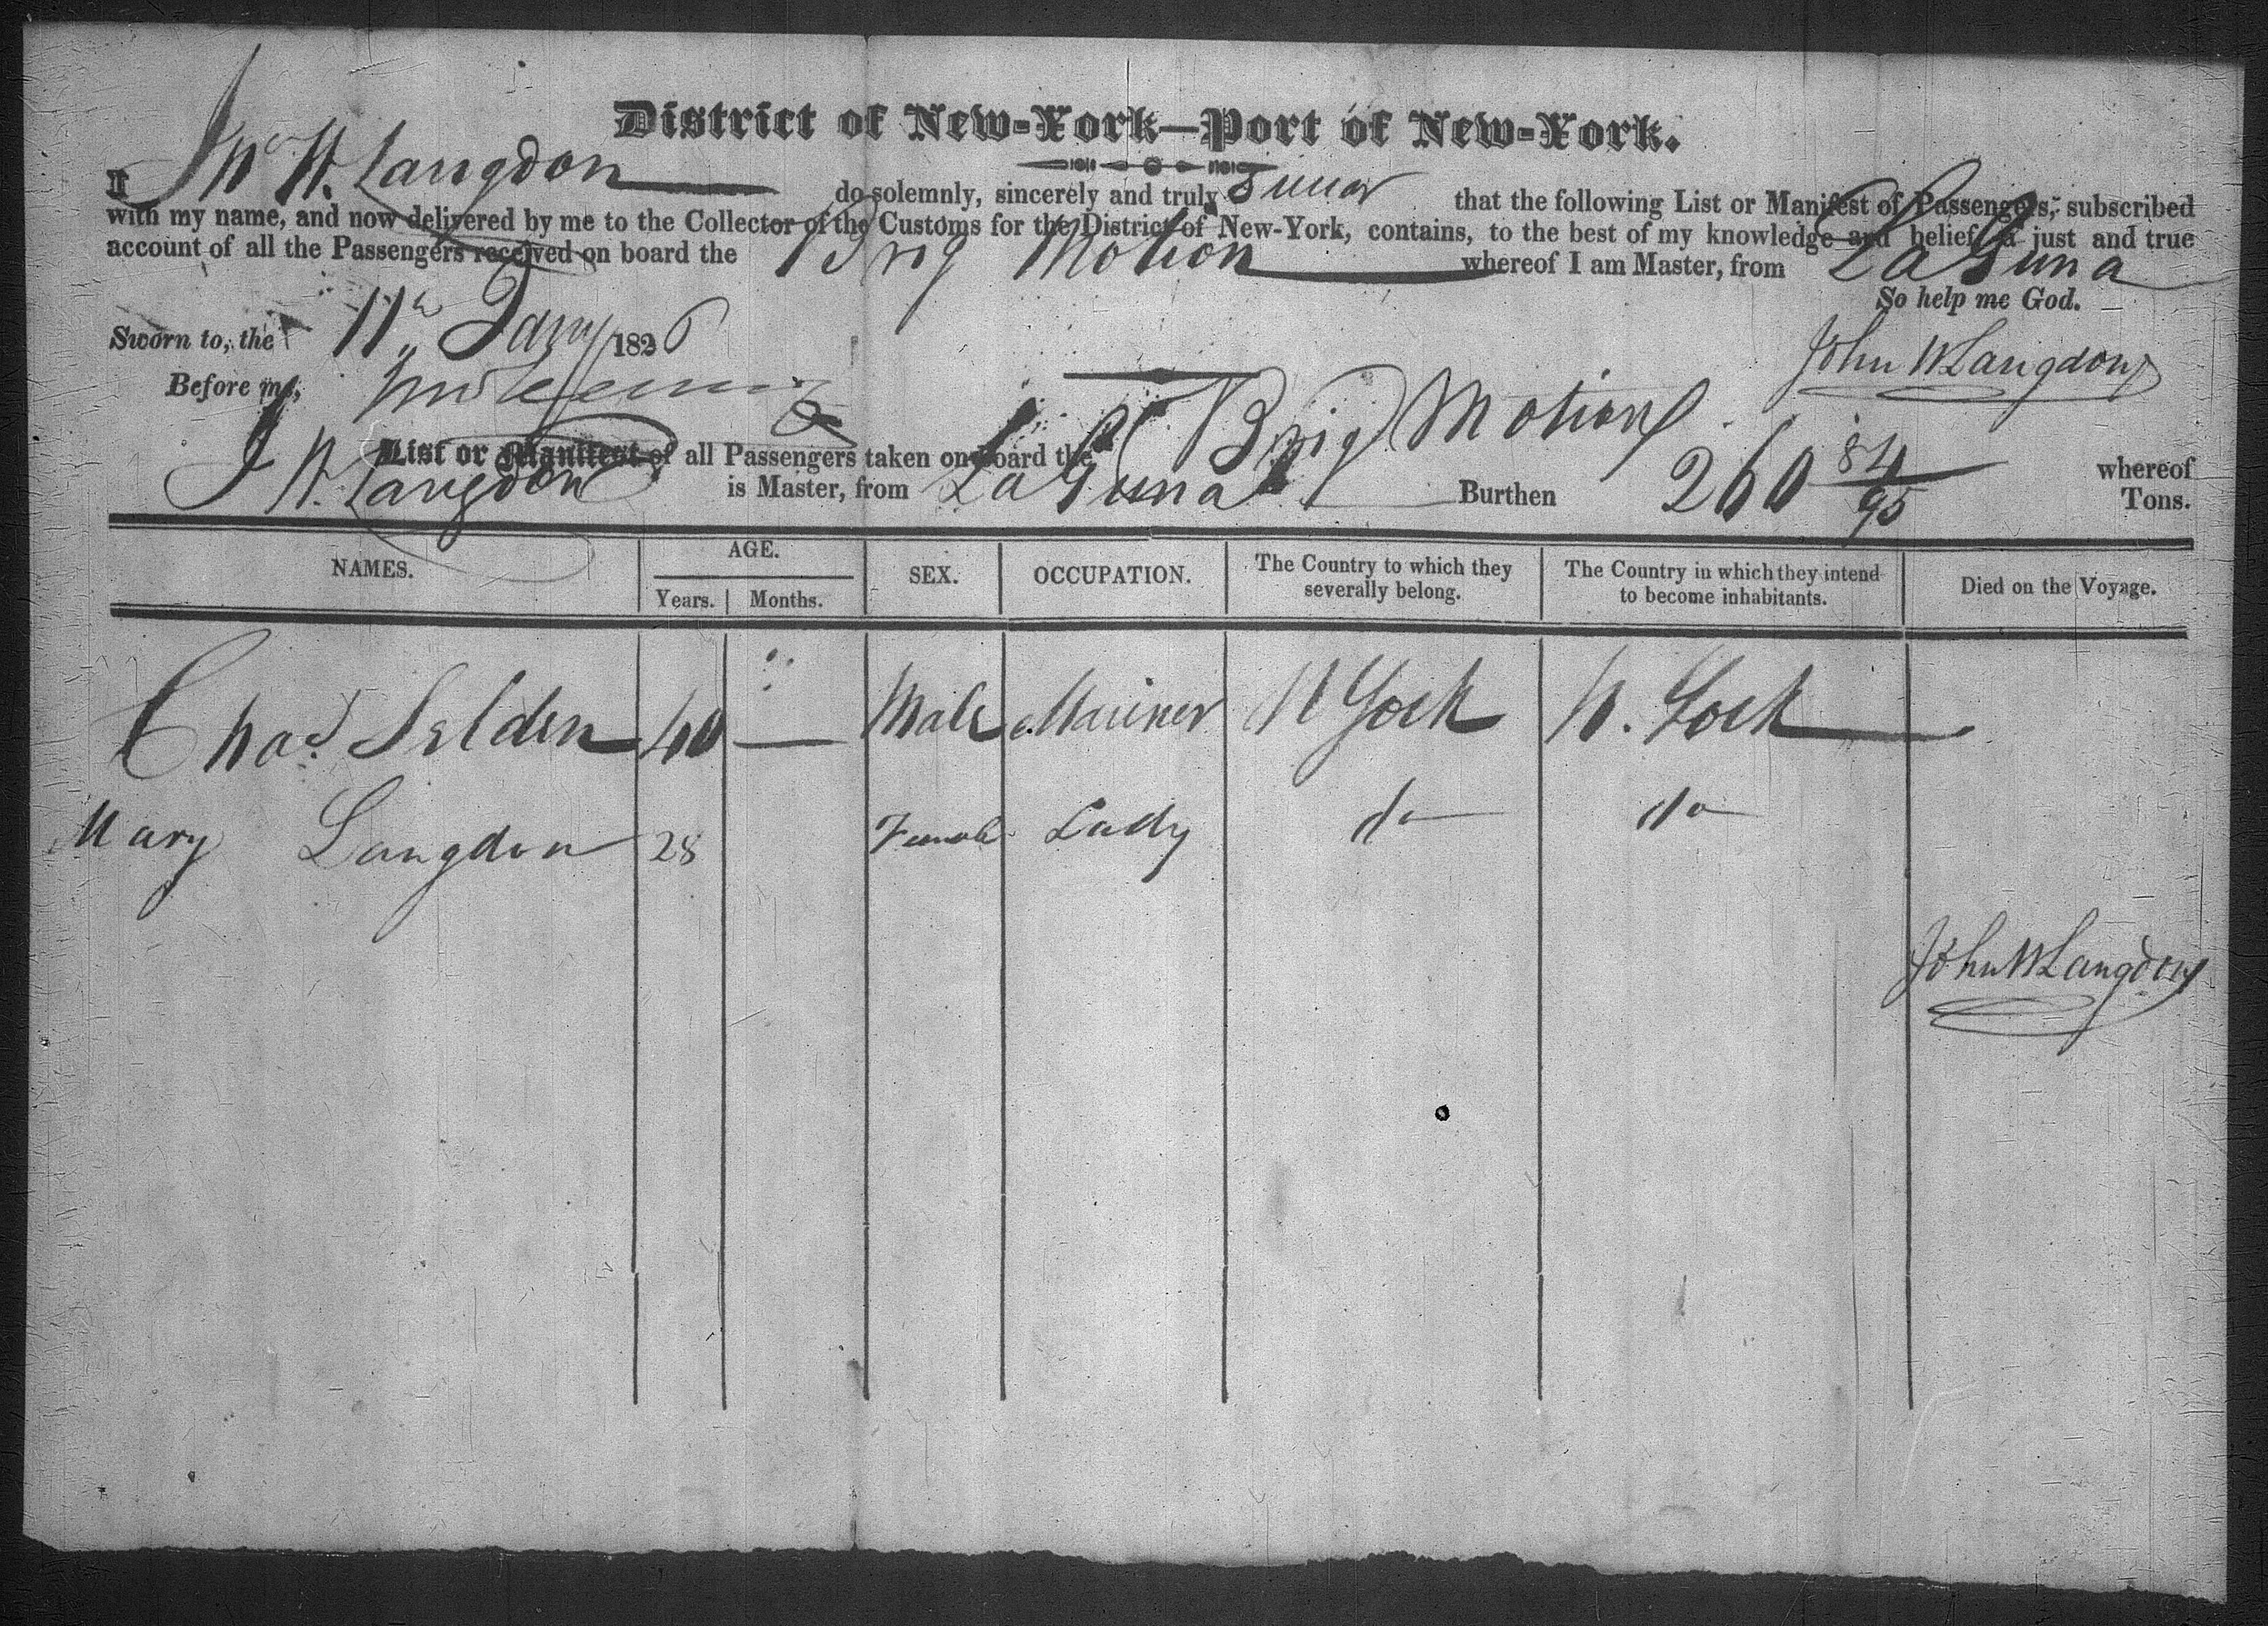 District of New-York—Port of New-York.
I Jno W. Langdon do solemnly, sincerely and truly swear that the following List or Manifest of Passengers, subscribed
with my name, and now delivered by me to the Collector of the Customs for the District of New-York, contains, to the best of my knowledge and belief, a just and true
account of all the Passengers received on board the Brig Motion whereof I am Master, from LaGuna
So help me God.
Sworn to, the 11th Jany 1836
Before me,
John W Langdon
List or Manifest of all Passengers taken on board the Brig Motion whereof
J W. Langdon is Master, from LaGuna Burthen 260 84/95 Tons.
NAMES. AGE. Years. Months. SEX. OCCUPATION. The Country to which they severally belong. The Country in which they intend to become inhabitants. Died on the Voyage.
Chas. Selden 40 — Male Mariner N York N. York
Mary Langdon 28 Female Lady do do
John W Langdon